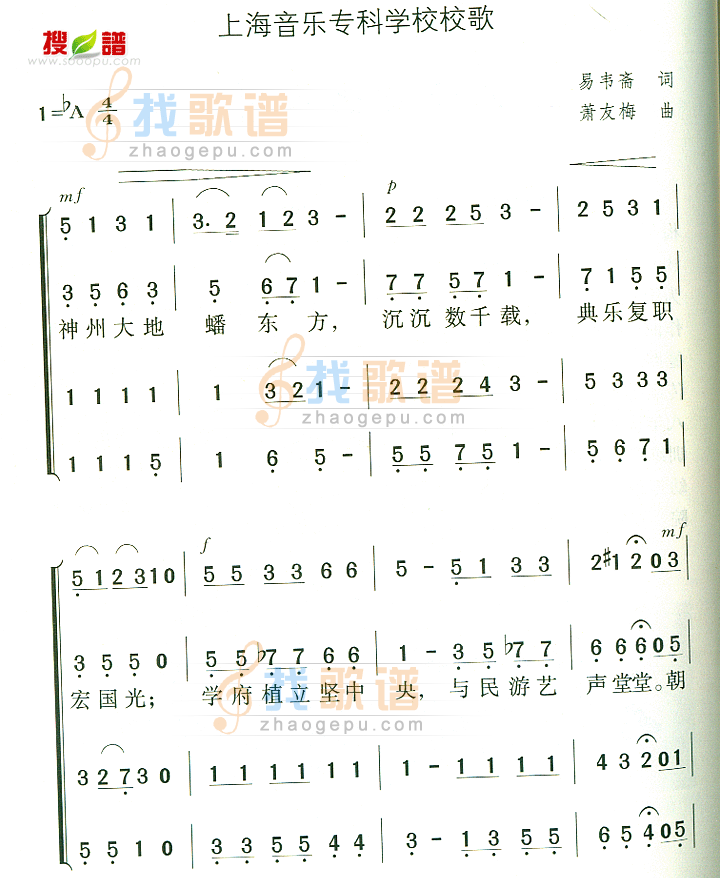 上海音乐专科学校校歌
搜 谱
www.sooopu.com
易韦斋 词
1=♭A 4/4
找歌谱
萧友梅 曲
zhaogepu.com
mf
p
5 1 3 1 | 3. 2 1 2 3 - | 2 2 2 5 3 - | 2 5 3 1
3 5 6 3 5 6 7 1 - | 7 7 5 7 1 - | 7 1 5 5
神州大地 蟠 东 方, 沉沉数千载, 典乐复职
找歌谱
1 1 1 1 | 1 3 2 1 - | 2 2 2 4 3 - | 5 3 3 3
zhaogepu.com
1 1 1 5 | 1 6 5 - | 5 5 7 5 1 - | 5 6 7 1
f
mf
5 1 2 3 1 0 | 5 5 3 3 6 6 | 5 - 5 1 3 3 | 2 #1 2 0 3
3 5 5 0 | 5 5 ♭7 7 6 6 | 1 - 3 5 ♭7 7 | 6 6 6 0 5
宏国光; 学府植立坚中 央, 与民游艺 声堂堂。朝
找歌谱
zhaogepu.com
3 2 7 3 0 | 1 1 1 1 1 1 | 1 - 1 1 1 1 | 4 3 2 0 1
5 5 1 0 | 3 3 5 5 4 4 | 3 - 1 3 5 5 | 6 5 4 0 5